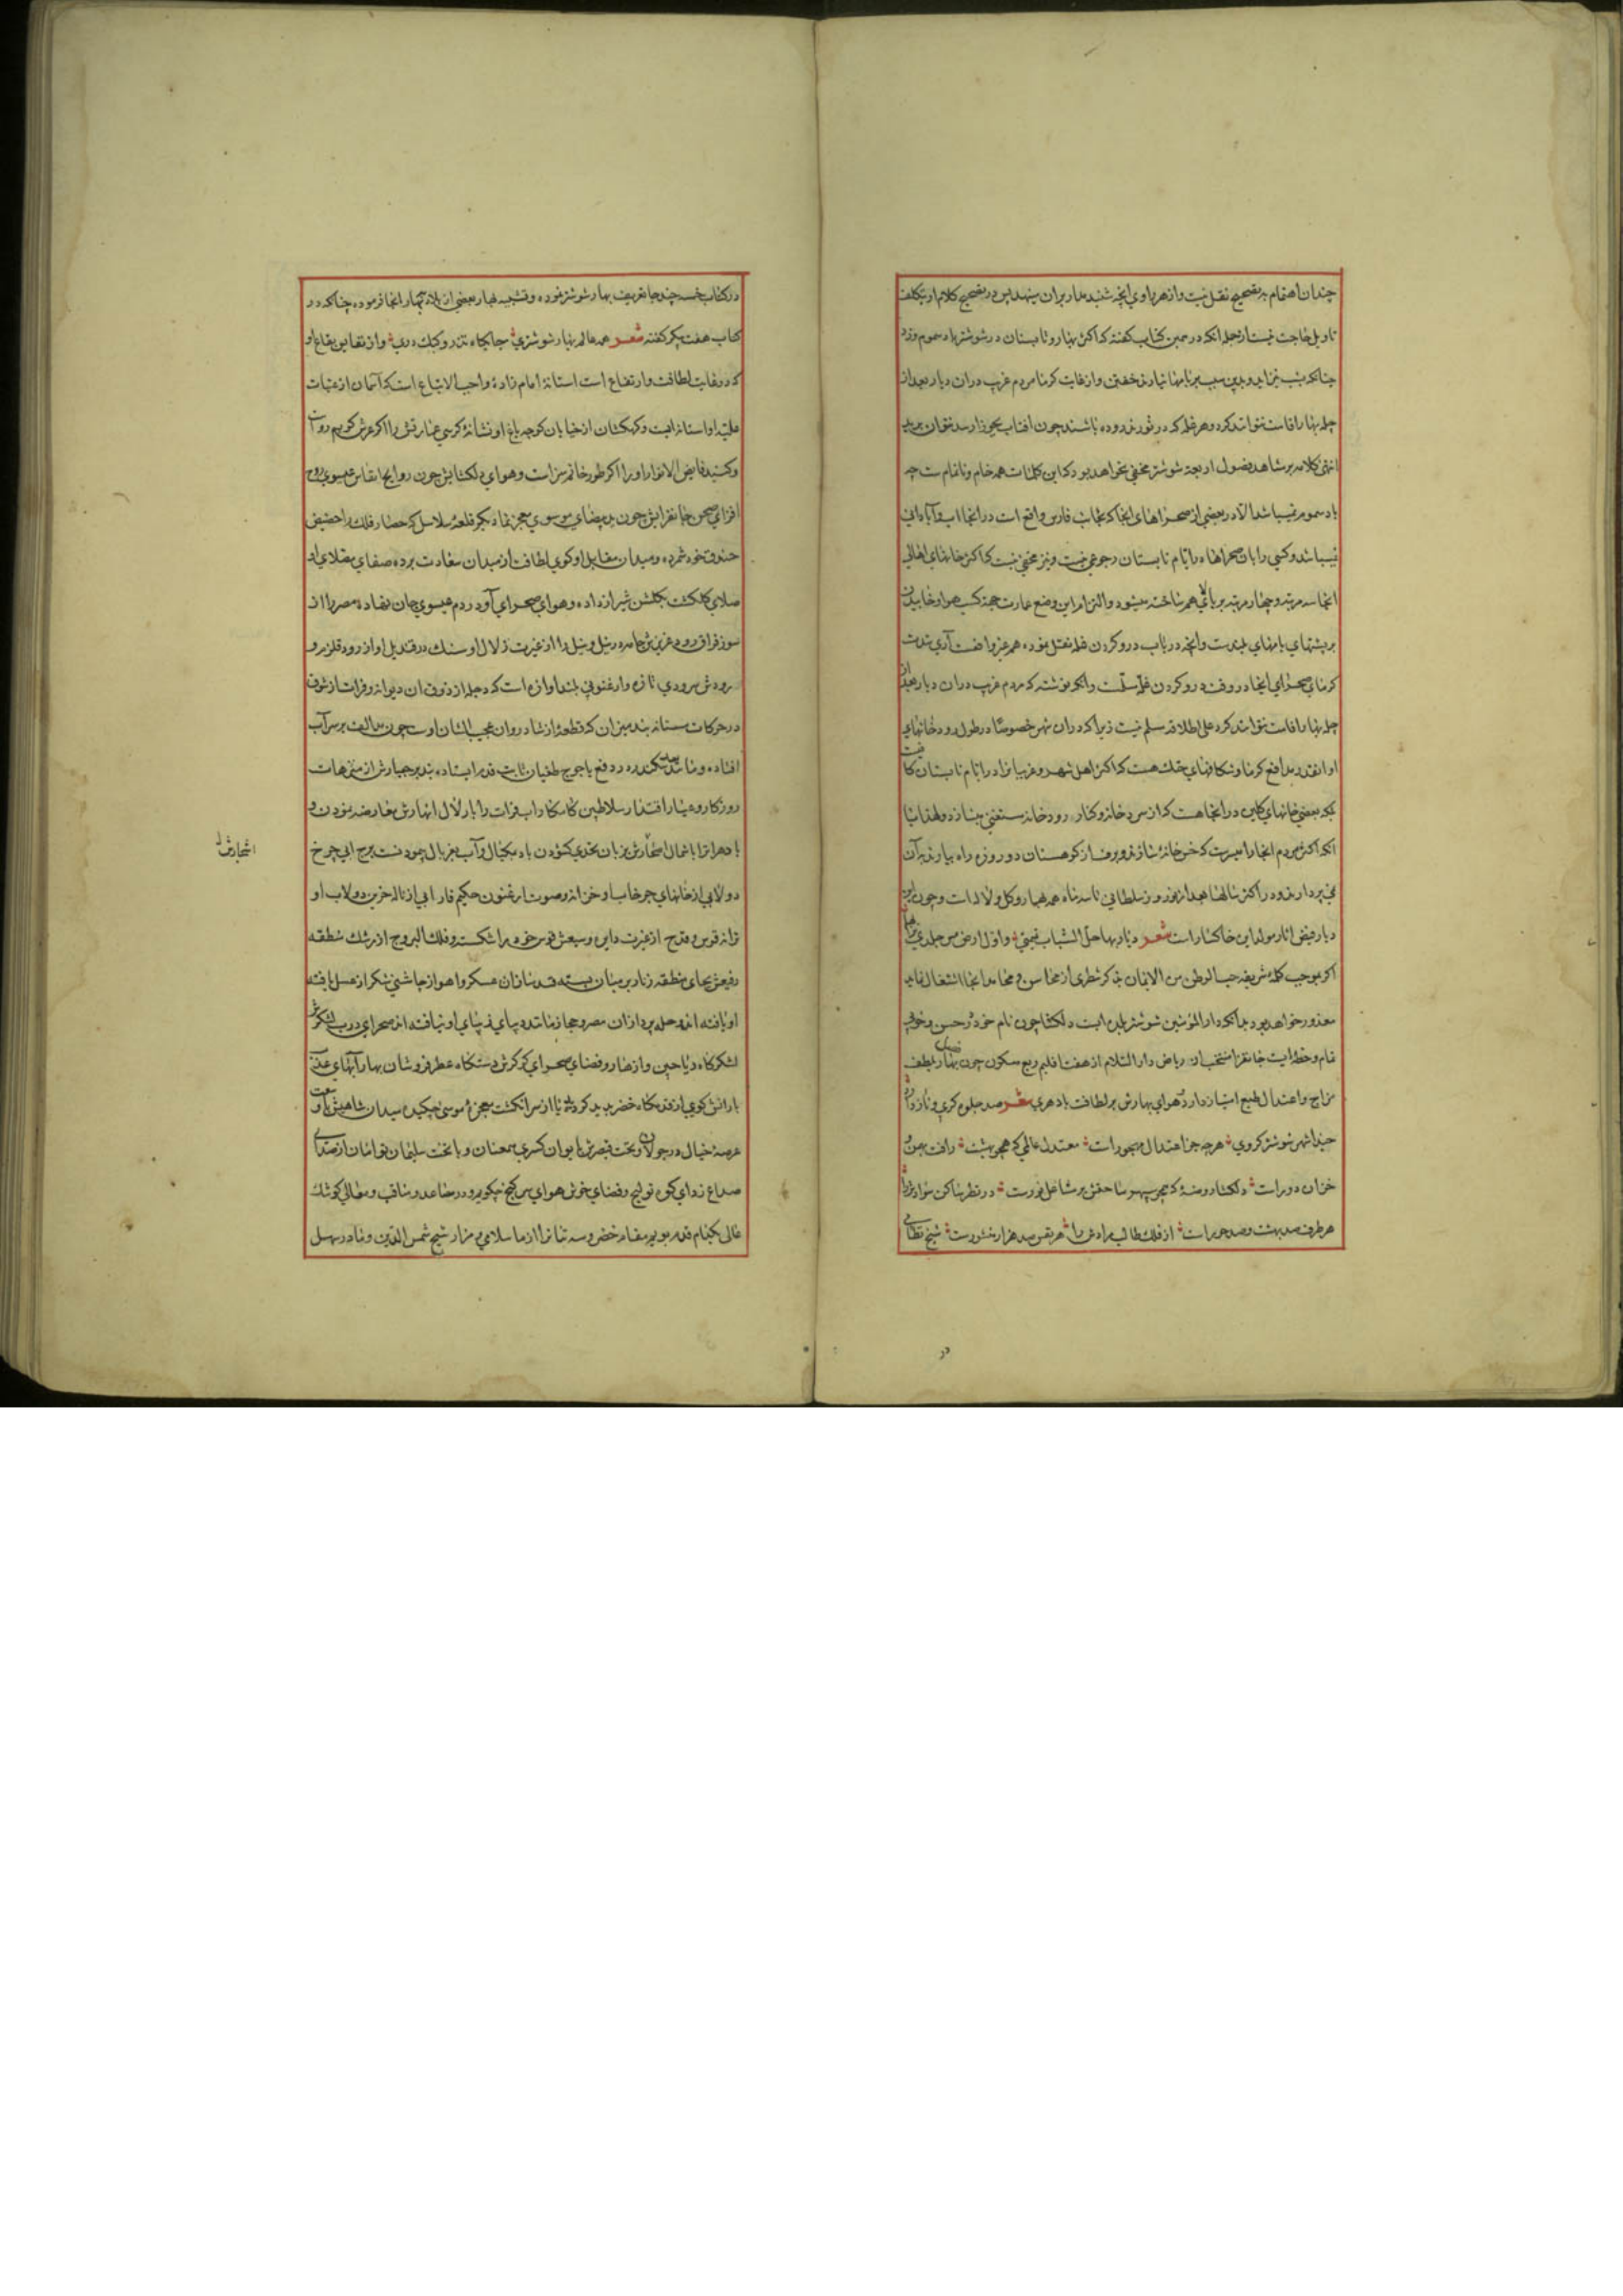 چندان اهتمام به تصحیح نقل نیست و از هر راوی آنچه شنید مدار بر آن مینهد پس در تصحیح کلام او تکلف
تاویل حاجت نیست از جمله آنکه در همین کتاب گفته که اکثر بهار و تابستان در شوشتر باد سموم وزد
چنانکه بشب نیز اید و بدین سبب بر بامها نیارند خفتن و از غایت کرما مردم غریب در آن دیار بعد از
چله بهار اقامت نتوانند کرد و هر غله که در ثور ندروده باشند چون آفتاب بجوزا رسد نتوان برید
انتهی کلامه بر شاهد فصول اربعه شوشتر مخفی نخواهد بود که این کلمات همه خام و ناتمام ست چه
باد سموم نمیباشد الا در بعضی از صحراهای انجا که بجانب فارس واقع است در انجا اب و آبادانی
نمیباشد و کسی را بان صحراها در ایام تابستان رجوعی نیست و نیز مخفی نیست که اکثر خانهای اهالی
انجا سه مرتبه و چهار مرتبه بر بالای هم ساخته میشود و التزام این وضع عمارت جهة کسب هوا و خوابیدن
بر پشتهای بامهای بلندست و آنچه در باب درو کردن غله نقل نموده هم غیر واقعست آری شدت
کرمای صحرای انجا در وقت درو کردن غله مسلمست و آنکه نوشته که مردم غریب در آن دیار بعد از
چله بهار اقامت نتوانند کرد علی اطلاقه مسلم نیست زیرا که در ان شهر خصوصا در طول رودخانهای
او انقدر مدافع کرما و شکافهای خنک هست که اکثر اهل شهر و غربا را در ایام تابستان کافیست
بلکه بعضی خانهای کلین در انجا هست که از سردخانه و کنار رودخانه مستغنی میسازد و لهذا با
آنکه اکثر مردم انجا را میسرست که خس خانه سازند و برف از کوهستان دو روزه راه بیارند به آن
نمی پردازند و در اکثر سالها بعد از نوروز سلطانی تا سه ماه همه بهار و کل و لاله است و چون این
دیار فیض آثار مولد این خاکسار است شعر دیار بها حل الشباب تمیمتی و اول ارض مس جلدی ترابها
اگر بموجب کلمه شریفه حب الوطن من الایمان بذکر شطری از محاسن و محامد انجا اشتغال نماید
معذور خواهد بود بدانکه دارالمؤمنین شوشتر بلده ایست دلکشا چون نام خود در حسن و خوبی
تمام و خطه ایست جانفزا منتخب از ریاض دارالسلام از هفت اقلیم ربع مسکون چون فصل بهار بلطف
مزاج و اعتدال طبع امتیاز دارد و هوای بهارش بر لطافت باد هری شعر صد جلوه کری و ناز دارد
حبذا شهر شوشتر کز وی هر چه جز اعتدال مهجور است معتدل عالمی که همچو بهشت رافت بهمن
خزان دور است دلکشا روضه که همچو سپهر ساحتش بر مشاعل نور است در نظر ساکن سواد
هر طرف صد بهشت و صد حور است از فلک طالب مرادش را هر نفس صد هزار منشور است شیخ نظامی
در
در کتاب خمسه چند جا تعریف بهار شوشتر نموده و تشبیه بهار بعضی از بلاد به بهار انجا فرموده چنانکه در
کتاب هفت پیکر گفته شعر همه عالم بهار شوشتری جایگاه تذرو و کبک دری و از نفایس بقاع او
که در غایت لطافت و ارتفاع است استانه امام زاده واجب الاتباع است که آسمان از عتبات
علیه او استانه ایست و کهکشان از خیابان کوچه باغ او نشانه کرسی عمارتش را اگر عرش گویم رواست
و گنبد فایض الانوار او را اگر طور خوانم سزاست و هوای دلکشایش چون روایح انفاس عیسوی روح
افزای صحن جانفزایش چون ید بیضای موسوی معجز نما دیگر قلعه سلاسل که حصار فلک را حضیض
خندق خود شمرده و میدان مقابل او گوی لطافت از میدان سعادت برده صفای مصلای او
صلای گلگشت بگلشن شیراز داده و هوای صحرای آو در دم عیسوی جان نهاده مصر را از
سوز فراق رود عزیزش جامه در نیل و نیل را از غیرت زلال او سنک در قندیل اواز رود قلزم و
رودش سرودی تازه و ارغنونی بلند اوازه است که دجله از ذوق ان دیوانه و فرات از شوق
در حرکات مستانه بند میزان که قطعه از شادروان عجیب الشان اوست چون مد الف بر سر آب
افتاده و مانند سد سکندر در دفع یاجوج طغیان ثابت قدم ایستاده
روزکار و عیار اقتدار سلاطین کامکار اب فرات را با زلال انهارش معارضه نمودن و
باد هرات را با شمال اسحارش بزبان تحدی کشودن باد بیکیال و آب بغربال پیمودنست برج ابی چرخ
دولابی از خانهای چرخاب او خزانه و صوت ارغنون حکیم فارابی از ناله حزین دولاب او
ترانه قوس و قدح از غیرت دایره وسیعش قوس خود را شکسته و فلک البروج از رشک منطقه
رفیعش بجای منطقه زنار بر میان بسته قند سازان عسکر و اهواز چاشنی شکر از عسل یافته
او یافته اند و حله پردازان مصر و حجاز مانند دیبای زیبای او نیافته اند صحرای درب لشکرش
لشکرگاه ریاحین و ازهار و فضای صحرای گرگرش دستگاه عطر فروشان بهار آبهای عذب
بارانش گوی از قدمگاه خضر پدید کرده یا از سر انگشت معجزه موسی چکیده میدان شاهیش
عرصه خیال در جولان و تخت قیصرش با ایوان کسری همعنان و با تخت سلیمان توامان از صدای
صداع زدای کوه تولیج و فضای خوش هوای سر کنج چگویم و در مصاعد و مناقب و معالی کوشک
عالی بکدام قدم پویم مقام خضر و سه تنان را از ما سلامی و مزار شیخ شمس الدین و مادر سهل
اشجارش